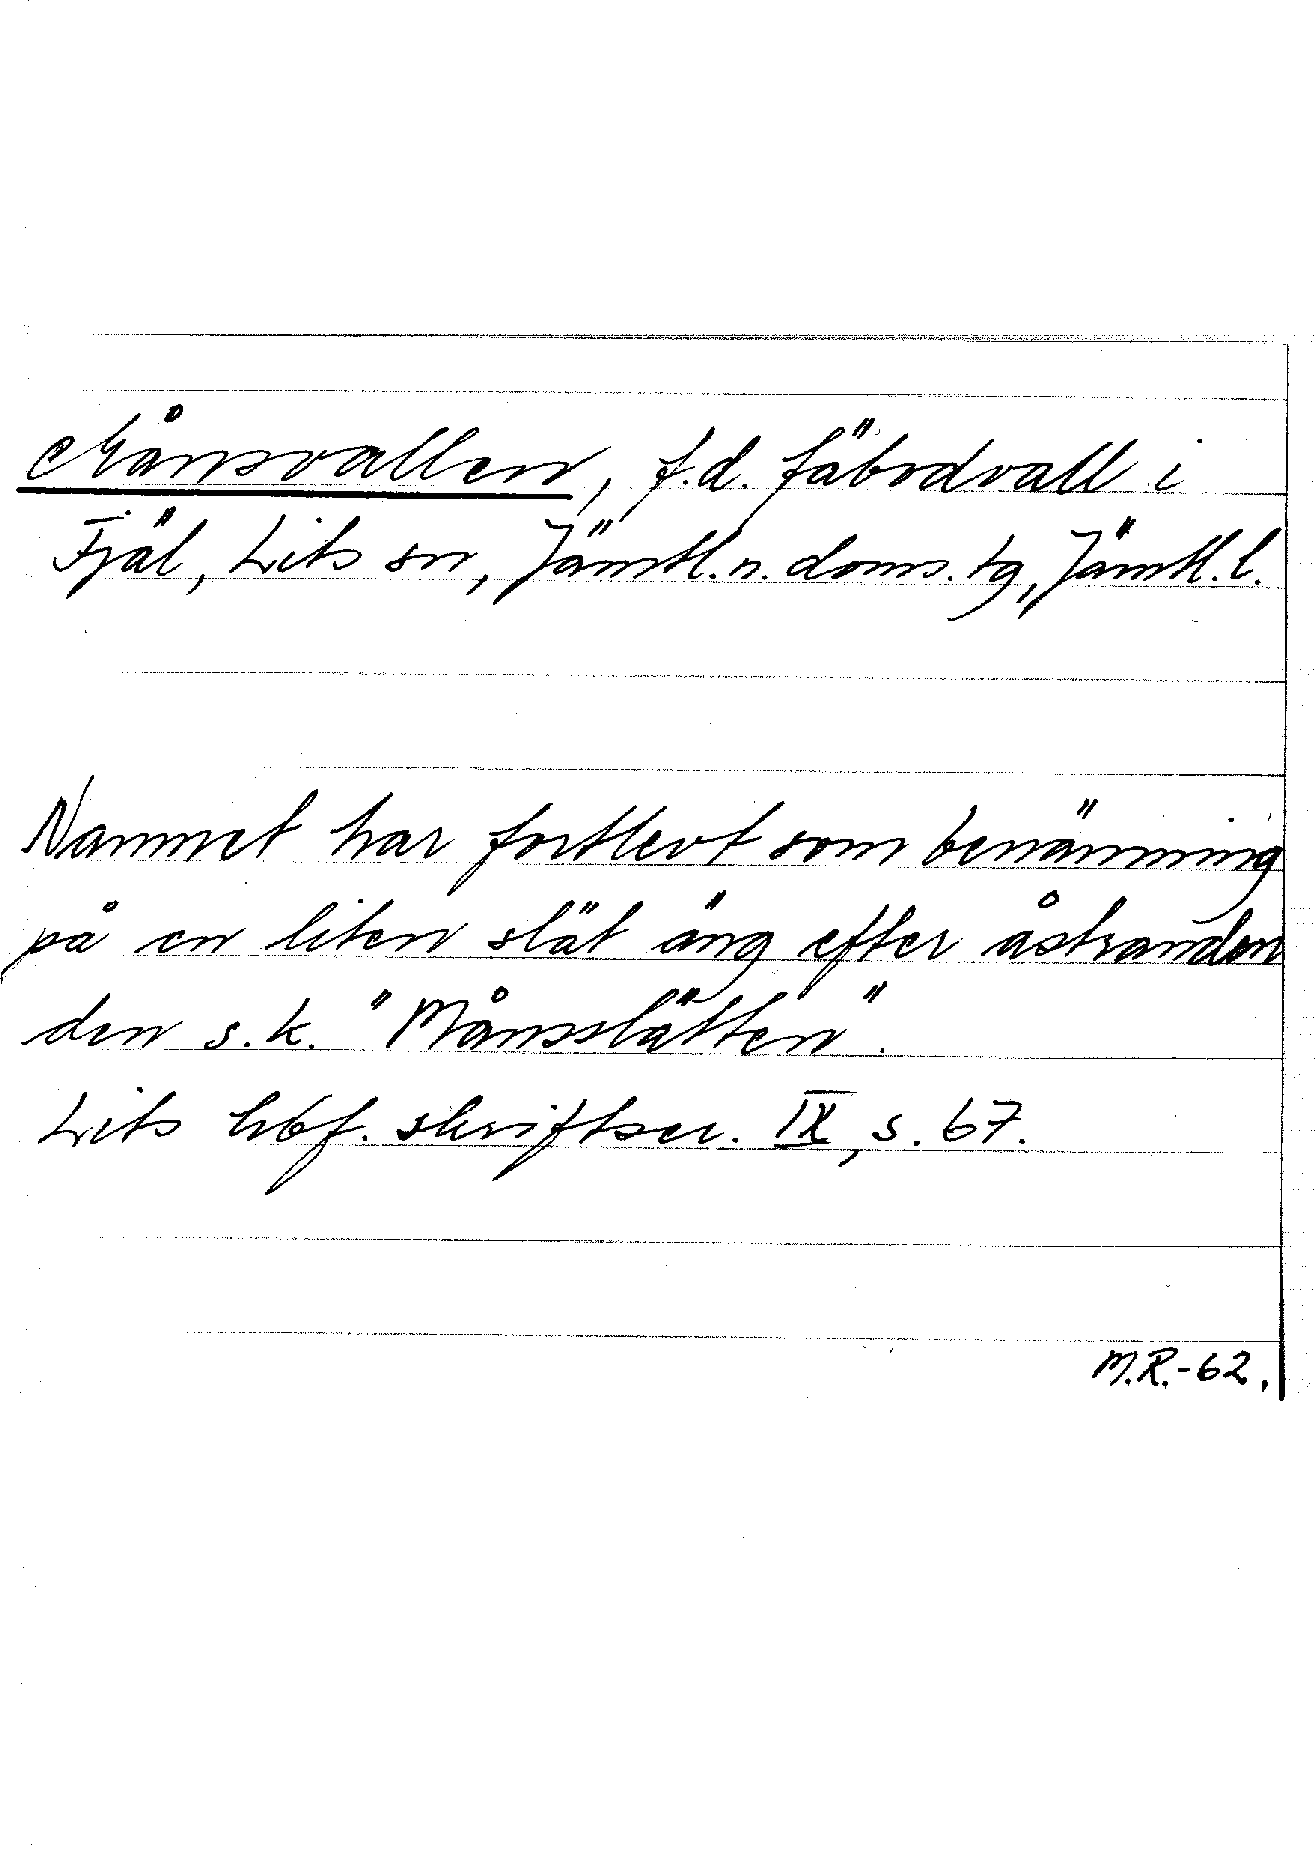 Månsvallen, f.d. fäbodvall i
Fjäl, Lits sn, Jämtl. n. doms. tg, Jämtl. l.
Namnet har fortlevt som benämning
på en liten slät äng efter åstranden
den s.k. "Månsslätten".
Lits hbf. skriftser. IX, s. 67.
M.R.-62.